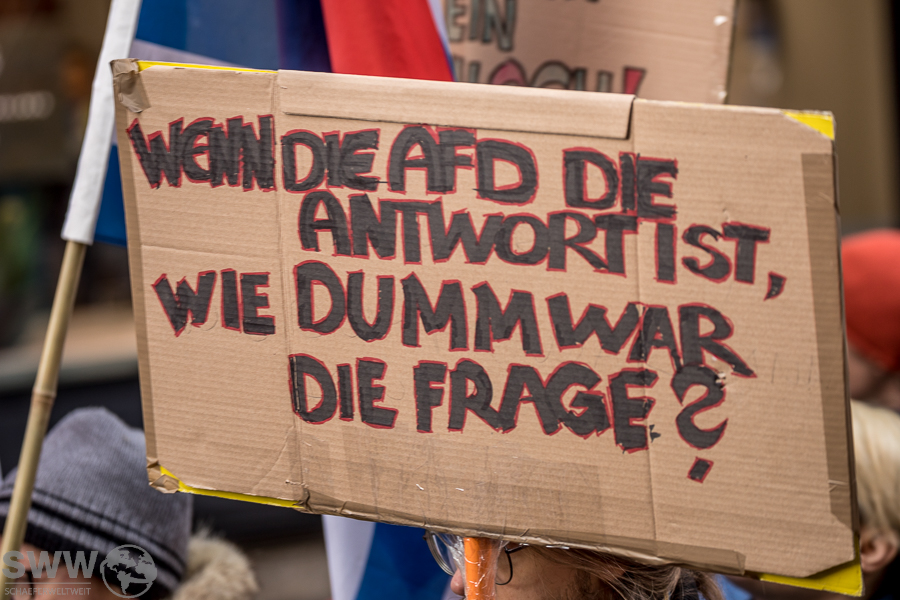 EIN
WENN DIE AFD DIE
ANTWORT IST,
WIE DUMM WAR
DIE FRAGE?
SWW